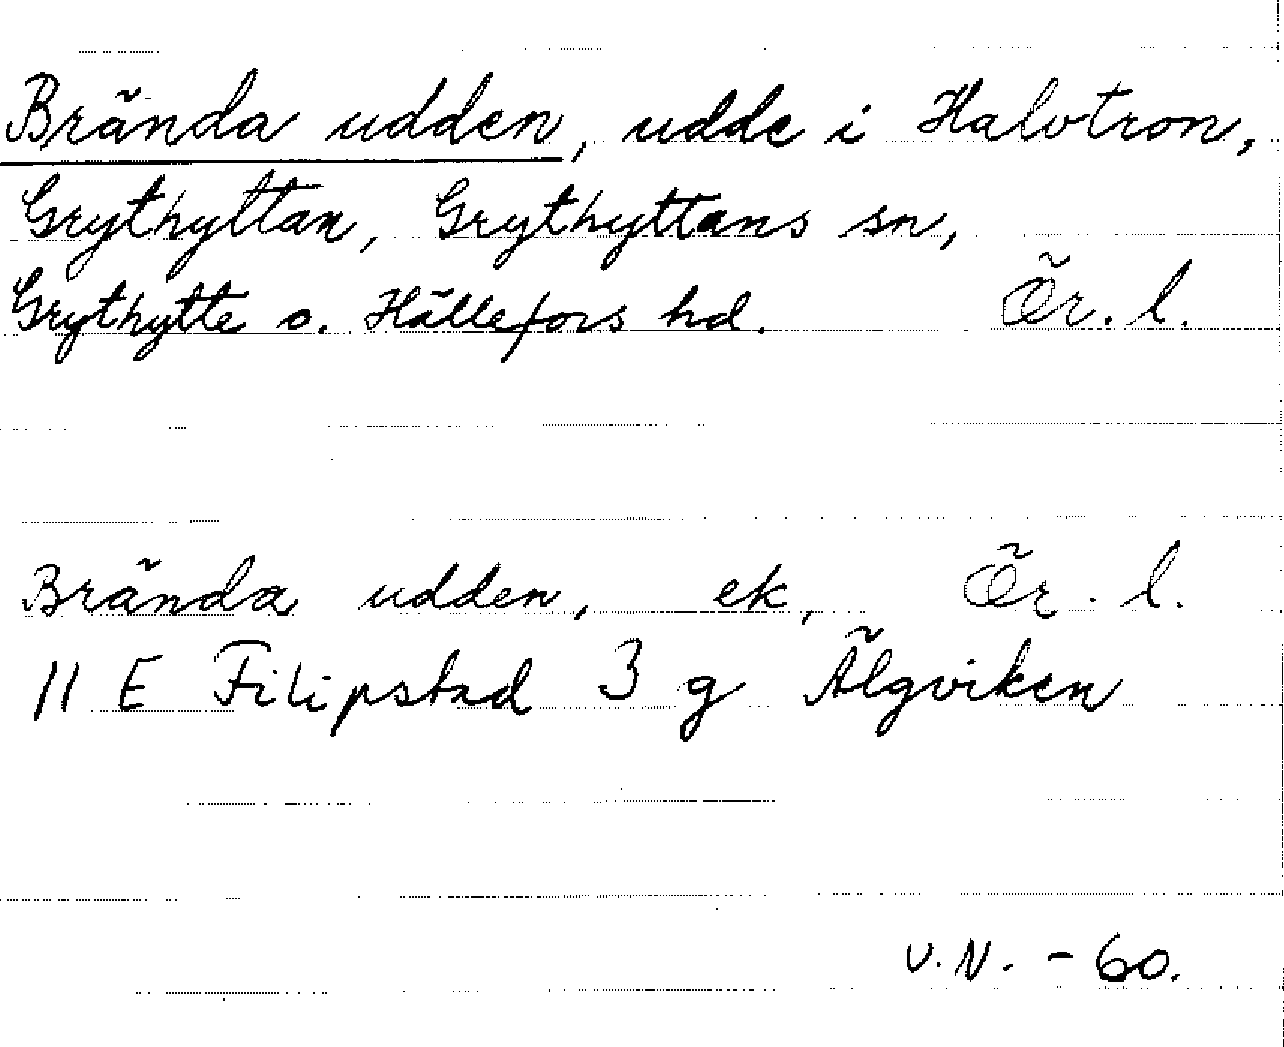 Brända udden, udde i Halvtron,
Grythyttan, Grythyttans sn,
Grythytte o. Hällefors hd. Ör. l.
Brända udden, ek, Ör. l.
11 E Filipstad 3 g Älgviken
V.N. - 60.